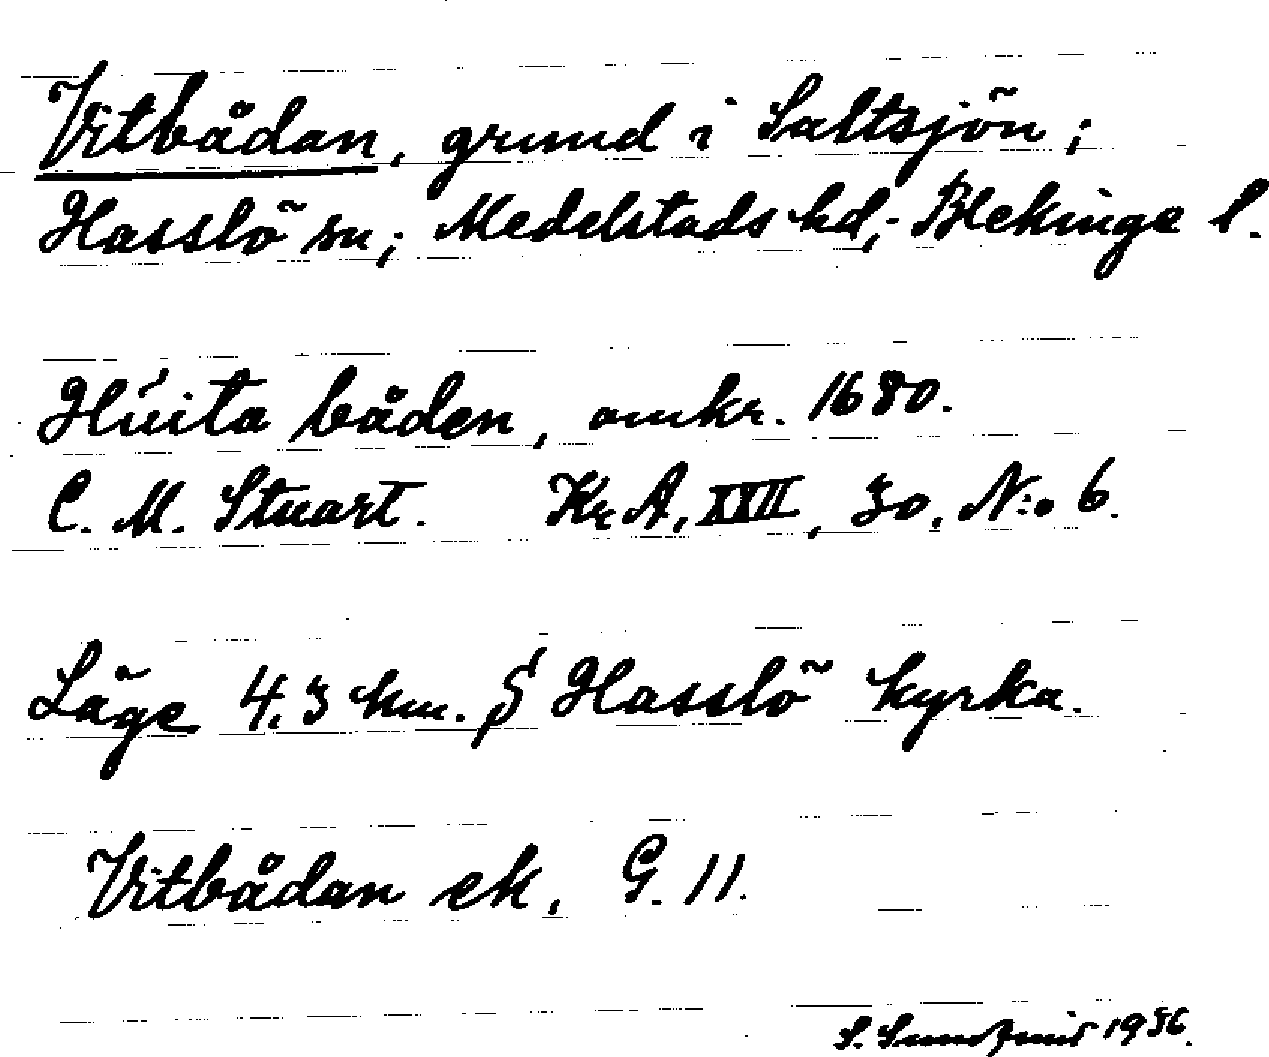 Vitbådan, grund i Saltsjön;
Hasslö sn; Medelstads hd; Blekinge l.
Húita båden, omkr. 1680.
C. M. Stuart. Kr A, XXII, 30, N:o 6.
Läge 4.3 km. S Hasslö kyrka.
Vitbådan ek. G. 11.
S. 1956.